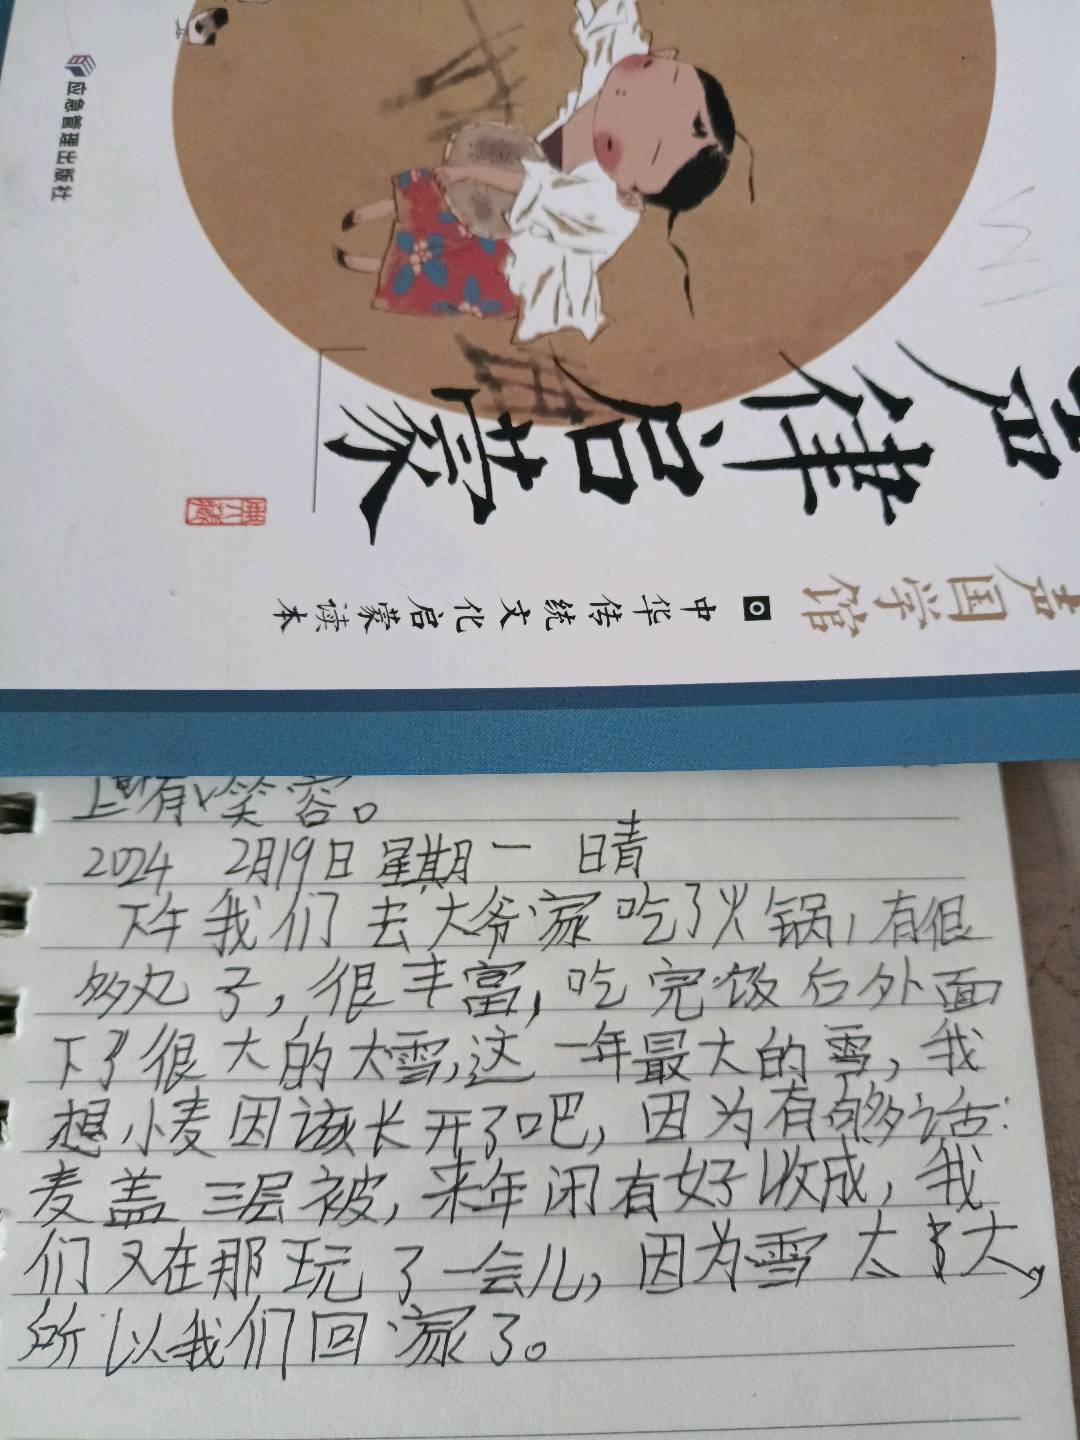 应急管理出版社
声律启蒙
国学馆
中华传统文化启蒙读本
上都有笑容。
2024 2月19日星期一 晴
下午我们去大爷家吃了火锅,有很
多丸子,很丰富,吃完饭后外面
下了很大的大雪,这一年最大的雪,我
想小麦因该长开了吧,因为有够话:
麦盖三层被,来年闲有好收成,我
们又在那玩了一会儿,因为雪太大,
所以我们回家了。